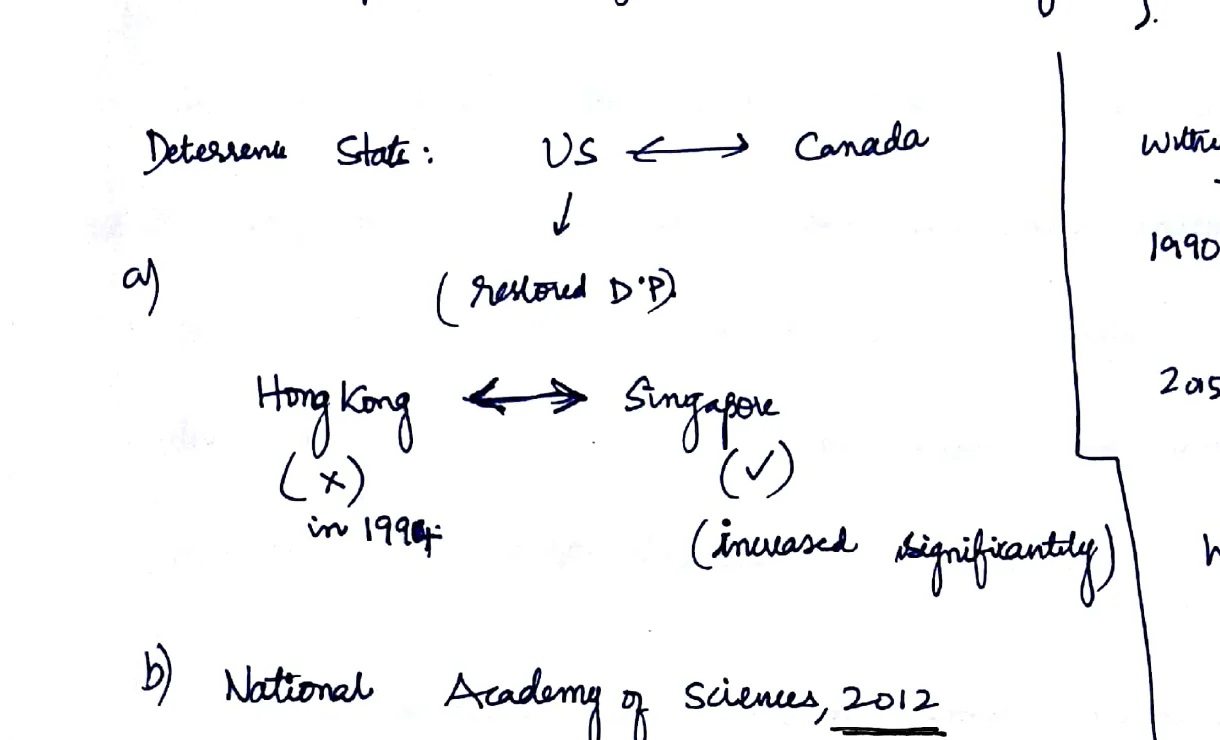 Deterrence State: US ↔ Canada
↓
a) (restored D.P)
Hong Kong ↔ Singapore
(×) (✓)
in 1994 (increased significantly)
b) National Academy of Sciences, 2012
1990